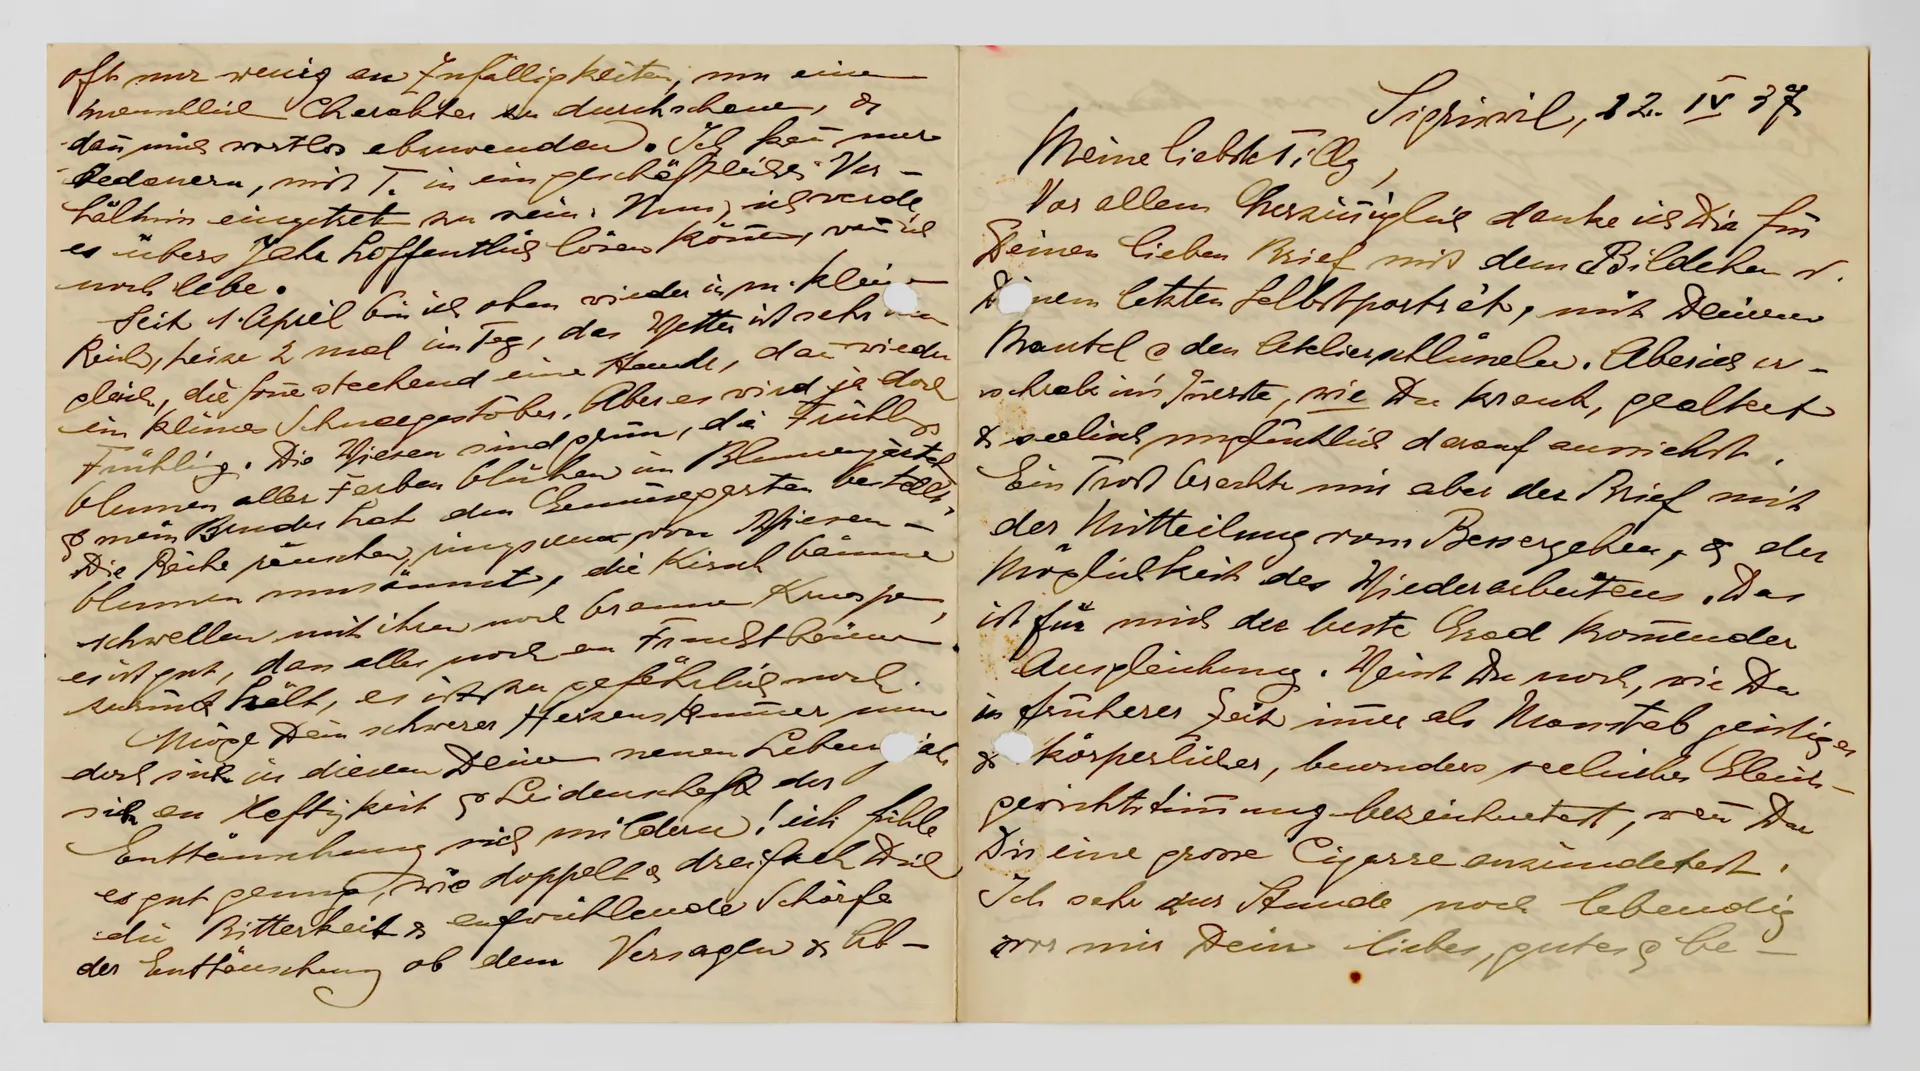 Sigriswil, 12. IV 37
Meine liebste Tilly,
Vor allem herzinniglich danke ich Dir für
Deinen lieben Brief mit dem Bildchen v.
Deinem letzten Selbstporträt, mit Deinem
Mantel & den Atelierschlüsseln. Aber ich er-
schrak im Innerste, wie Du krank, gealtert
& seelisch darauf aussiehst.
Ein Trost brachte mir aber der Brief mit
der Mitteilung vom Bessergehen, & der
Möglichkeit des Wiederarbeitens. Das
ist für mich der beste Grad kommender
Ausgleichung. Weisst Du noch, wie Du
in früherer Zeit immer als Masstab geistiger
& körperlicher, besonders seelischer Gleich-
gewichtstimmung bezeichnetest, wen̄ Du
Dir eine grosse Cigarre anzündetest.
Ich sehe zur Stunde noch lebendig
vor mir Dein liebes, gutes & be-
oft nur wenig an Zufälligkeiten, um einen
menschlich Charakter zu durchschauen, &
dan̄ mich wortlos abzuwenden. Ich kan̄ nur
bedauern, mit T. in ein geschäftliches Ver-
hältnis eingetreten zu sein. Nun, ich werde
es übers Jahr hoffentlich lösen kön̄en, wen̄ ich
noch lebe.
Seit 1. April bin ich oben wieder in m. kleinen
Reich, heize 2 mal im Tag, das Wetter ist sehr
gleich, die Son̄e stechend eine Stunde, dan̄ wieder
ein kleines Schneegestöber. Aber es wird ja doch
Frühling. Die Wiesen sind grün, die Frühlings
blumen aller Farben blühen im Blumengärtch
& mein Bruder hat den Gemüsegarten bestellt.
Die Bäche rauschen, ringsum von Wiesen-
blumen umsäumt, die Kirschbäume
schwellen mit ihren noch braunen Knospen,
es ist gut, dass alles noch an Fruchtbäumen
zurück hält, es ist zu gefährlich noch.
Möge Dein schwerer Herzenskummer nun
doch sich in diesem Deinem neuen Lebensjahr
sich an Heftigkeit & Leidenschaft der
Enttäuschung sich mildern! ich fühle
es gut genug, wie doppelt & dreifach Dich
die Bitterkeit & aufwühlende Schärfe
der Enttäuschung ob dem Versagen & Ab-